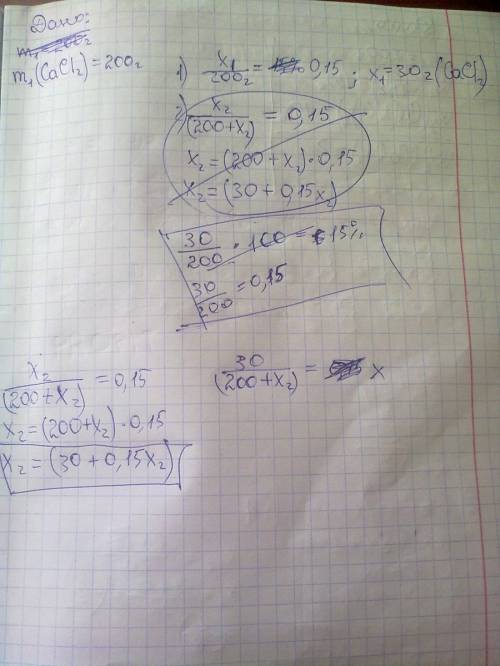 Дано:
m₁(CaCl₂)=200г
1) x₁/200г = 0,15 ; x₁=30г(CaCl₂)
2) x₂/(200+x₂) = 0,15
x₂=(200+x₂)·0,15
x₂=(30+0,15x₂)
30/200 · 100 = 15%
30/200 = 0,15
x₂/(200+x₂) = 0,15
x₂=(200+x₂)·0,15
x₂=(30+0,15x₂)
30/(200+x₂) = x